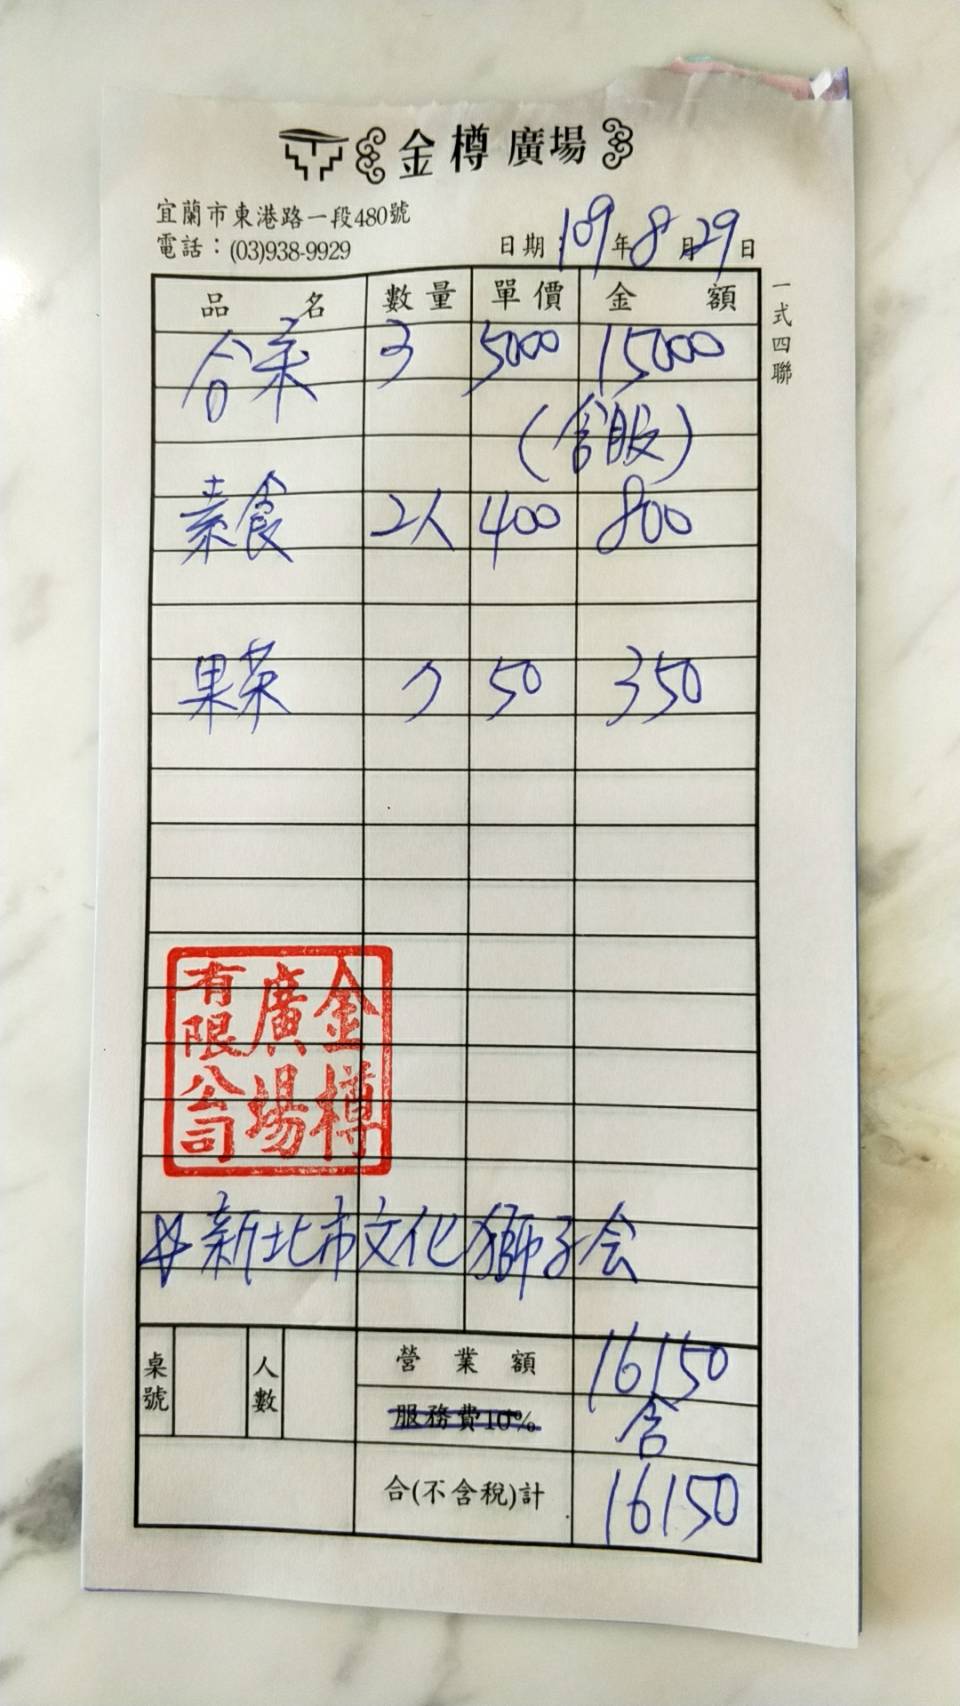 金樽廣場
宜蘭市東港路一段480號
電話：(03)938-9929
日期：109年8月29日
一式四聯
品名 數量 單價 金額
合菜 3 5000 15000
(含服)
素食 2人 400 800
果茶 7 50 350
金樽廣場有限公司
新北市文化獅子会
桌號 人數 營業額 16150
服務費10% 含
合(不含稅)計 16150